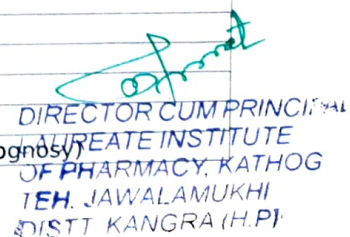 DIRECTOR CUM PRINCIPAL
LAUREATE INSTITUTE
ognosy)
OF PHARMACY, KATHOG
TEH. JAWALAMUKHI
DISTT KANGRA (H.P)